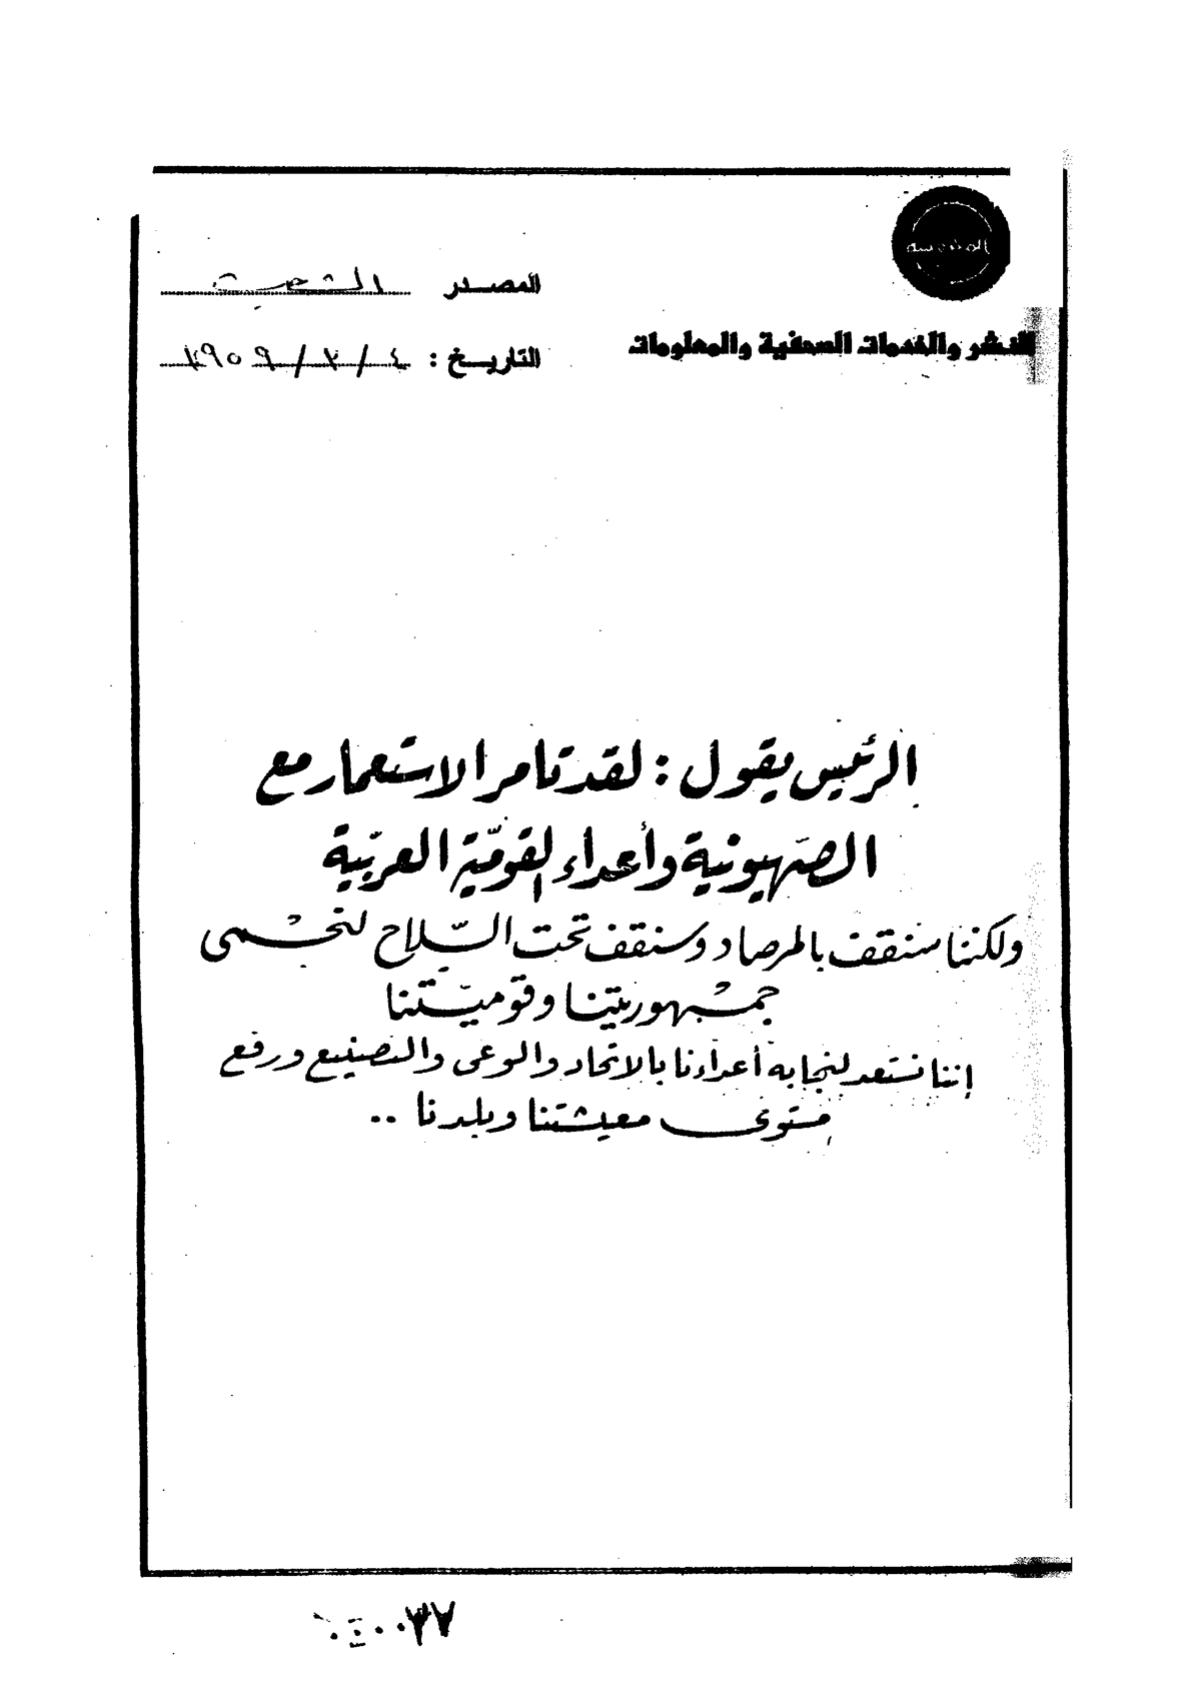 المحروسة
للنشر والخدمات الصحفية والمعلومات
المصدر الشعب
التاريخ : ٤ / ٣ / ١٩٥٩
الرئيس يقول : لقد تامر الاستعمار مع
الصهيونية وأعداء القوميّة العربيّة
ولكننا سنقف بالمرصاد وسنقف تحت السّلاح لنحمى
جمهوريتنا وقوميّتنا
إننا نستعد لنجابه أعداءنا بالاتحاد والوعى والتصنيع ورفع
مستوى معيشتنا وبلدنا ..